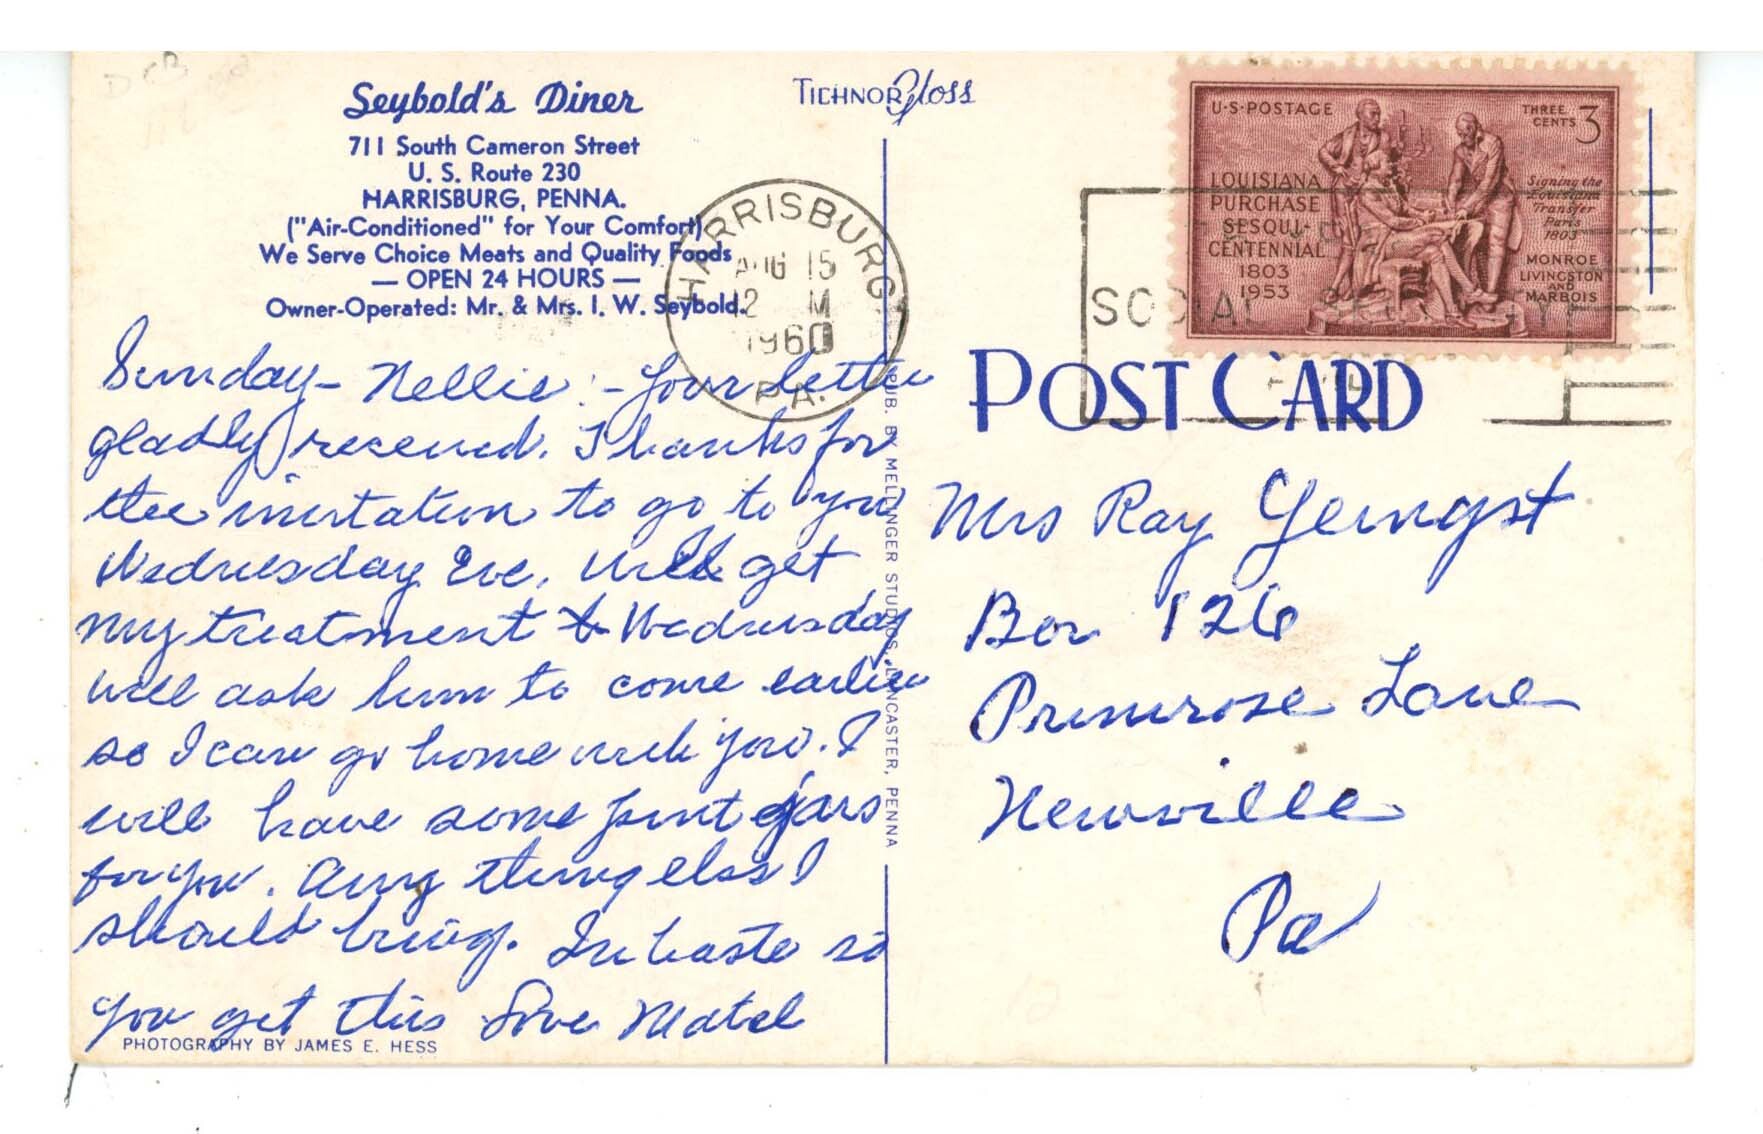 Seybold's Diner
711 South Cameron Street
U. S. Route 230
HARRISBURG, PENNA.
("Air-Conditioned" for Your Comfort)
We Serve Choice Meats and Quality Foods
— OPEN 24 HOURS —
Owner-Operated: Mr. & Mrs. I. W. Seybold.
TICHNOR Gloss
HARRISBURG
AUG 15
12 M
1960
PA.
U·S·POSTAGE
THREE CENTS 3
LOUISIANA
PURCHASE
SESQUI-
CENTENNIAL
1803
1953
Signing the
Louisiana
Transfer
Paris
1803
MONROE
LIVINGSTON
AND
MARBOIS
SOCIAL SECURITY
POST CARD
Sunday - Nellie :- Your letter
gladly received. Thanks for
the invitation to go to you
Wednesday Eve. Will get
my treatment Wednesday
will ask him to come earlier
so I can go home with you. I
will have some pint jars
for you. Any thing else I
should bring. In haste so
you get this Love
PHOTOGRAPHY BY JAMES E. HESS
PUB. BY MELLINGER STUDIOS, LANCASTER, PENNA
Mrs Ray Yeingst
Box 126
Primrose Lane
Newville
Pa